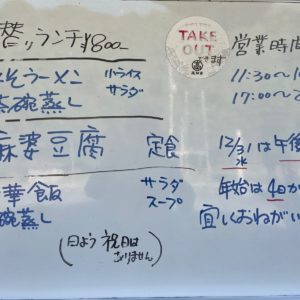 替りランチ¥800
TAKE
OUT
できます
営業時間
みそラーメン
小ライス
サラダ
11:30〜1
茶碗蒸し
17:00〜2
麻婆豆腐 定食
12/31は午後
水
中華飯
サラダ
スープ
年始は4日か
茶碗蒸し
宜しくおねがい
(日よう祝日は
ありません)